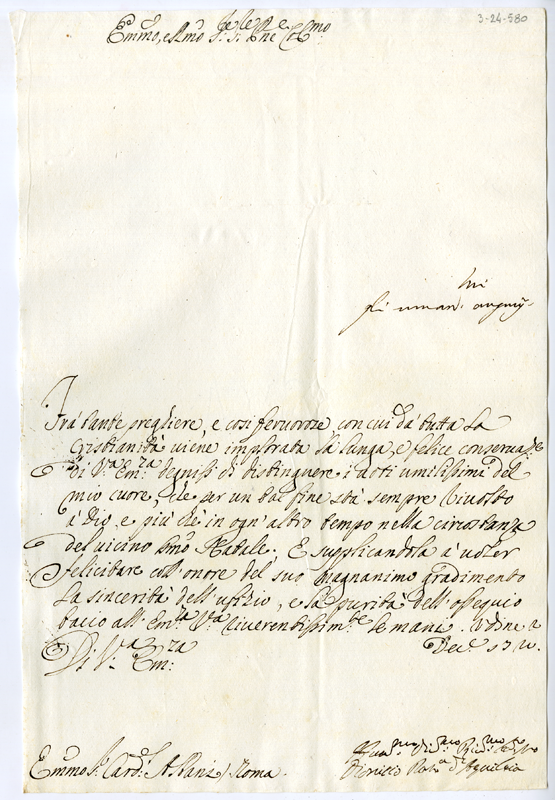 3-24-580
Emmo, e Rmo Sig.r Sig.r Pne Colmo
gli uman.
Frà tante preghiere, e così feruoroze, con cui dà tutta la
Cristianità uiène implorata la lunga, e felice conserua.ne
di V.ra Em.za degnisi di distinguere i uoti umilissimi del
mio cuore, che per un tal fine stà sempre riuolto
à Dio, e più chè in ogn'altro tempo nella circostanza
del uicino Smo Natale. E supplicandola à uoler
felicitare coll'onore del suo magnanimo gradimento
la sincerità dell'ufizio, e la purità dell'ossequio
bacio all'Em.za V.ra riuerentissim.te le mani. Vdine 2
Dec.e
Di V.ra Em.za
Emmo Sig.r Card.l Albani / Roma.
Dionisio Patr.a d'Aquileia